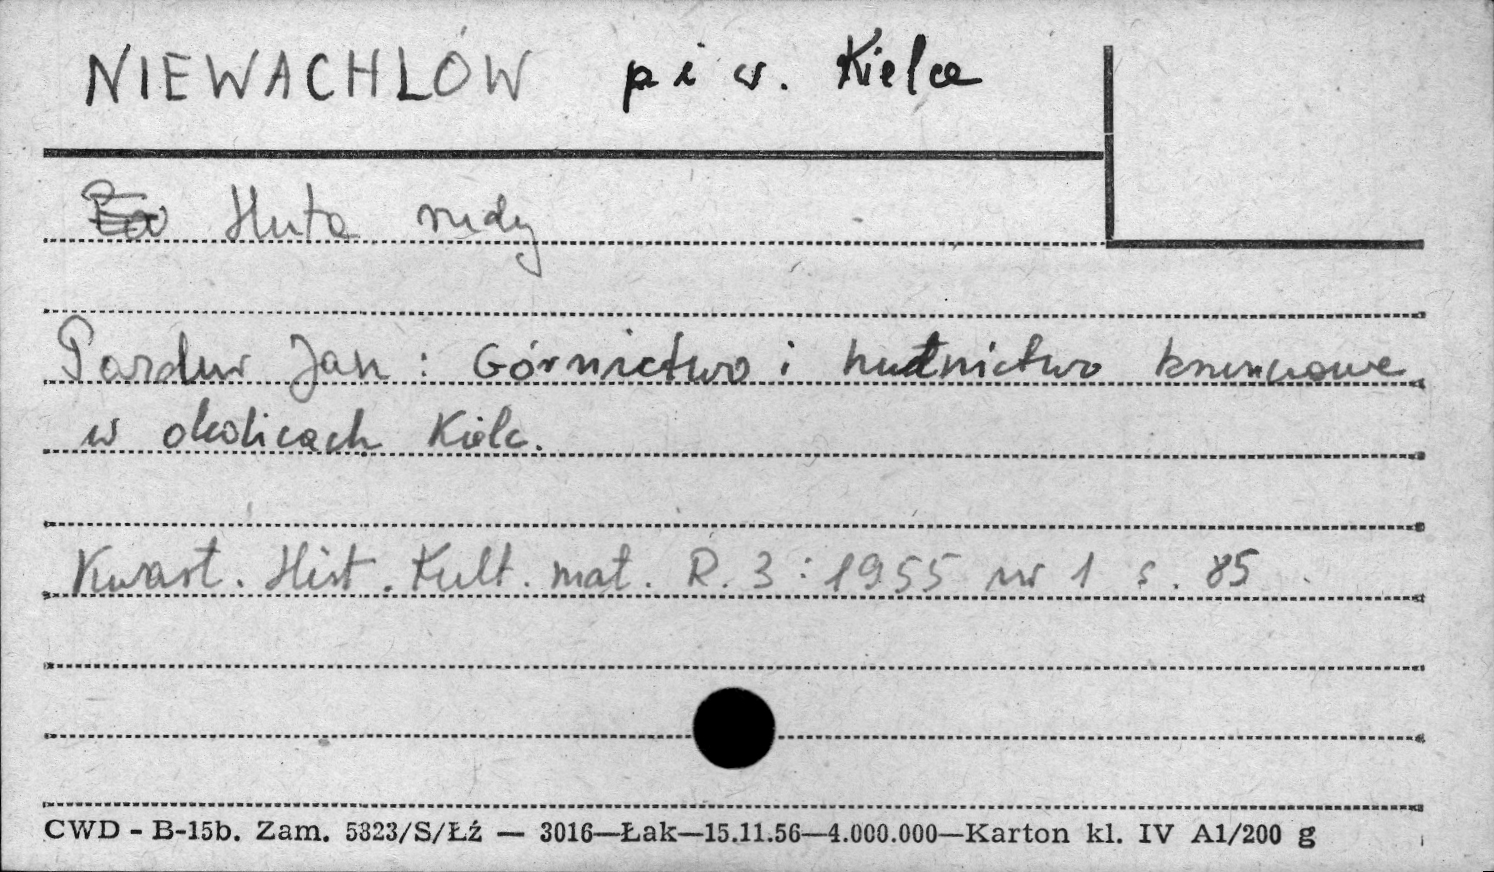 NIEWACHLÓW p i w. Kielce
Huta rudy
Pazdur Jan : Górnictwo i hutnictwo kruszcowe
w okolicach Kielc.
Kwart. Hist. Kult. mat. R. 3 : 1955 nr 1 s. 85
CWD - B-15b. Zam. 5323/S/Łź — 3016—Łak—15.11.56—4.000.000—Karton kl. IV A1/200 g